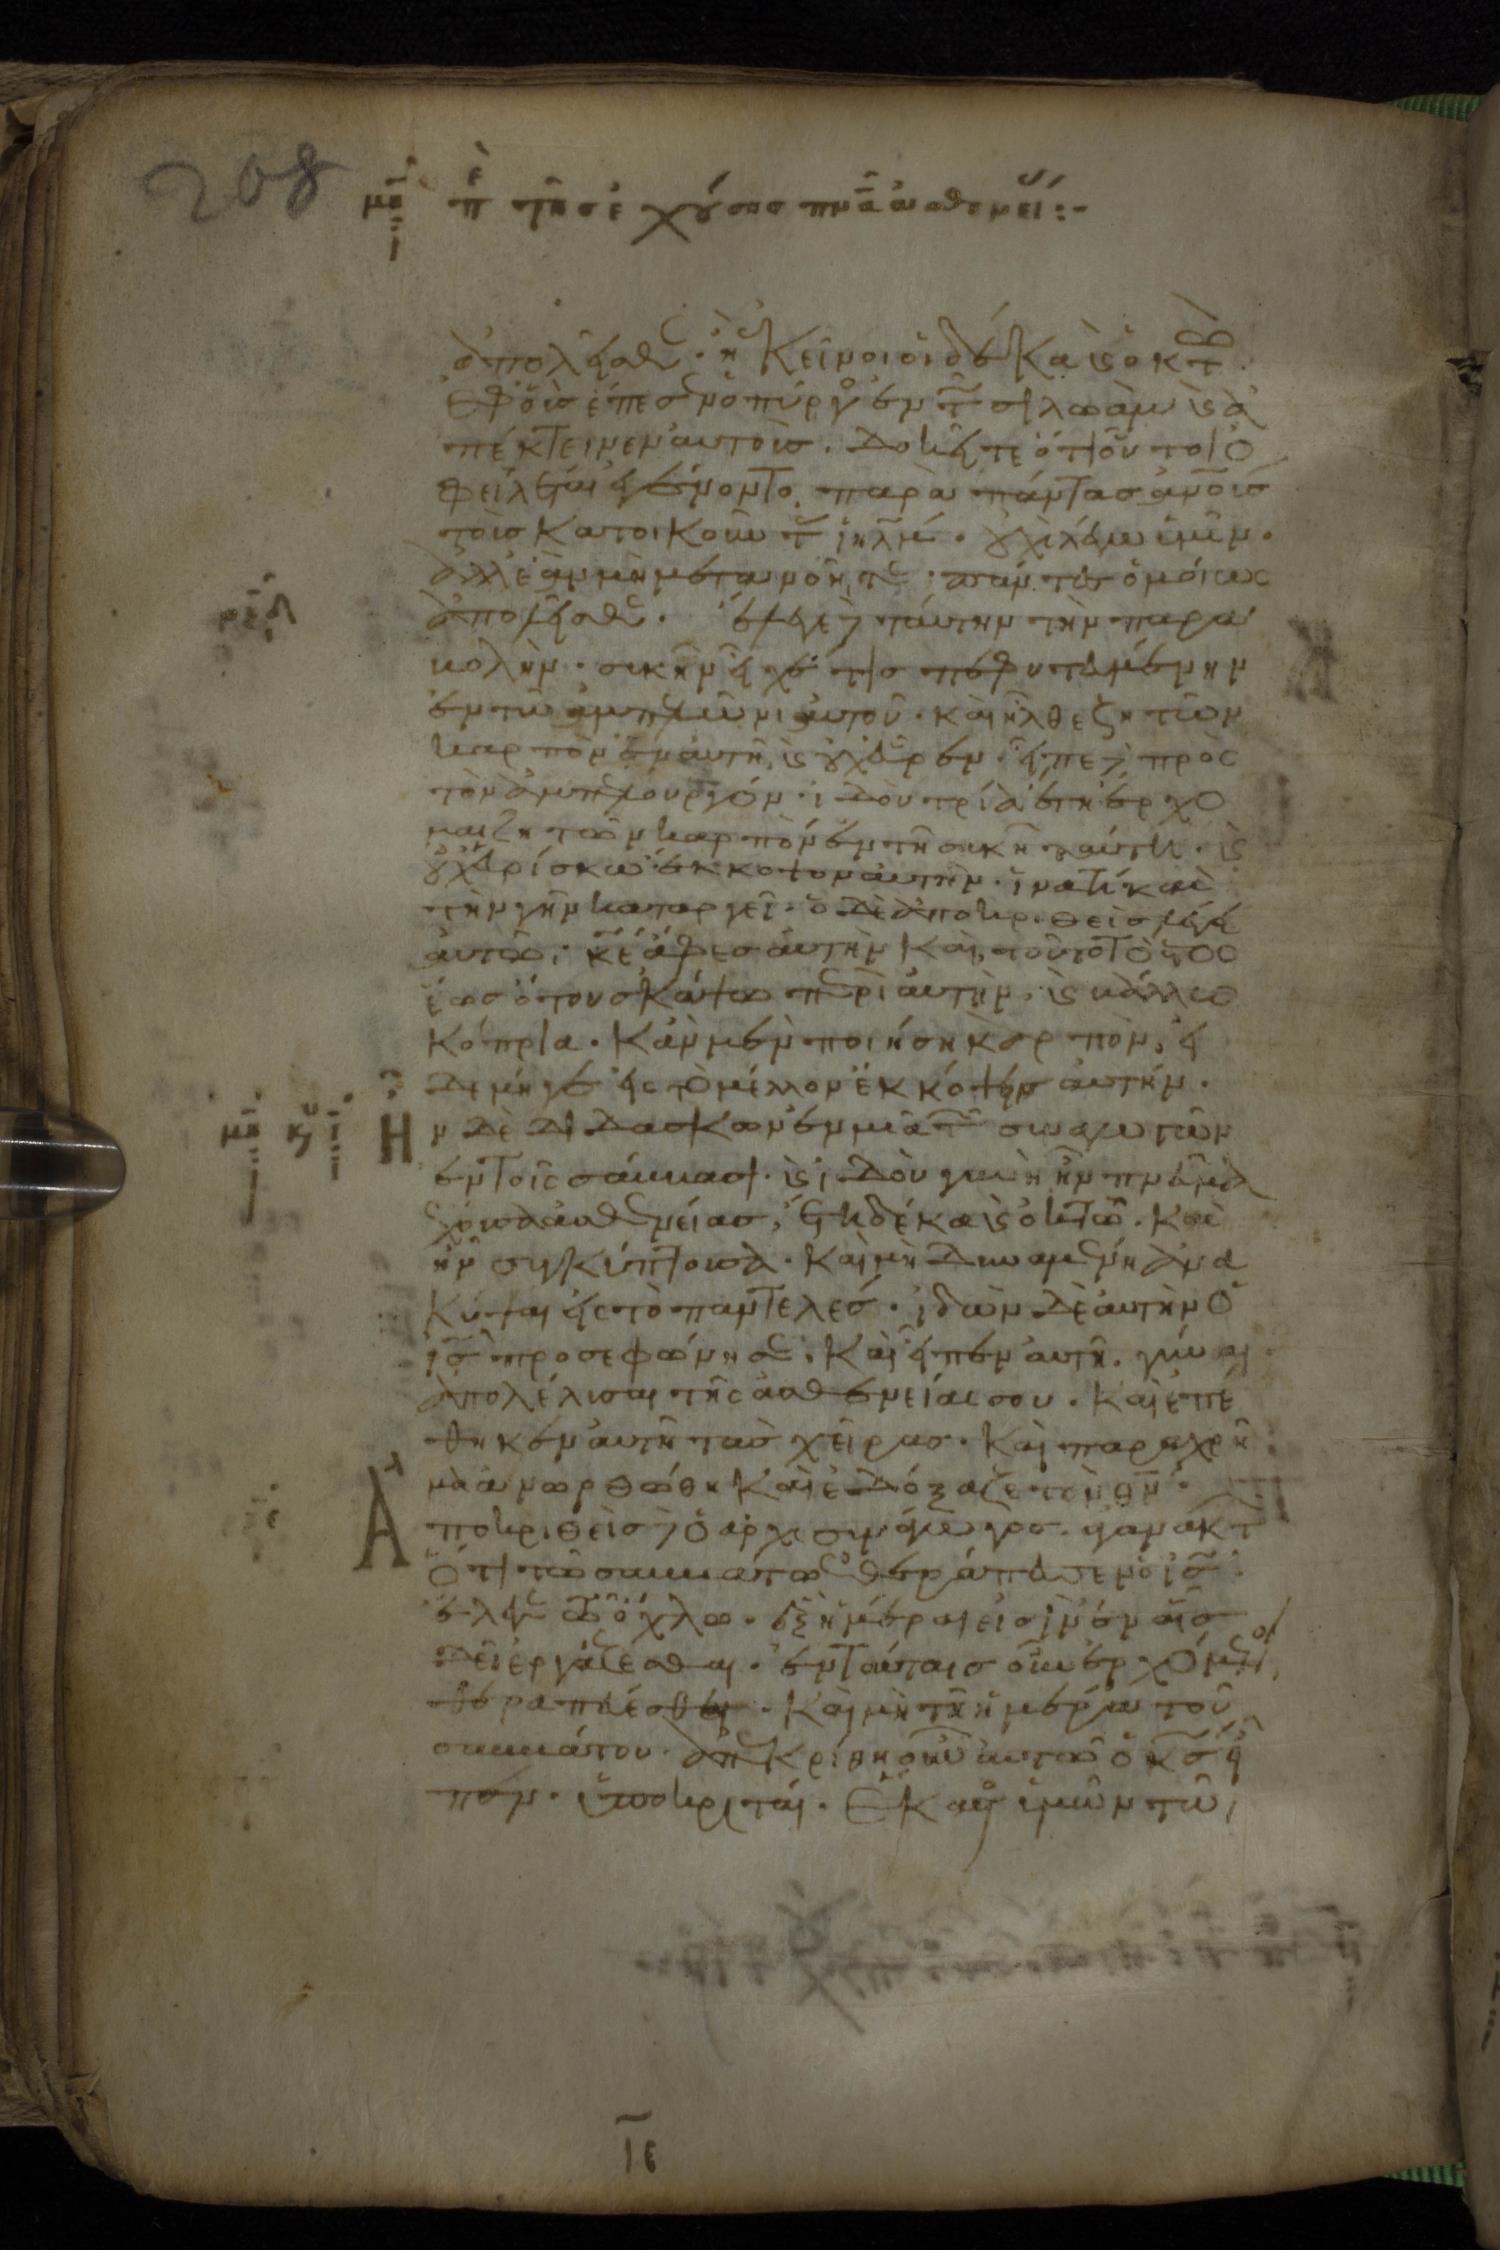 208
μη π τῆς ἐχούσης πνα ἀσθενεί :-
ἀπολεῖσθε. ἢ ἐκεῖνοι οἱ δέκα κς ὀκτ
ἐφ οὓς ἔπεσεν ὁ πύργος ἐν τ σιλωὰμ κς ἀ
πέκτεινεν αὐτούς. δοκεῖτε ότι οὗτοι ὀ
φειλέται ἐγένοντο παρὰ πάντας ἀνους
τοὺς κατοικοῦν τ ιηλμ. οὐχὶ λέγω ὑμῖν.
ἀλλ ἐὰν μὴ μετανοῆτε. πάντες ὁμοίως
ἀπολεῖσθε. ἔλεγε δὲ ταύτην τὴν παρα
βολὴν. συκῆν εἶχέ τις πεφυτευμένην
ἐν τῶ ἀμπελῶνι αὐτοῦ. καὶ ἦλθε ζητῶν
καρπὸν ἐν αὐτῆ κς οὐχ εὗρεν. εἶπε δὲ πρὸς
τὸν ἀμπελουργόν. ἰδοὺ τρία ἔτη ἔρχο
μαι ζητῶν καρπὸν ἐν τῆ συκῆ ταύτη. κς
οὐχ εὑρίσκω. ἔκκοψον αὐτὴν. ἱνατί καὶ
τὴν γῆν καταργεῖ. ὁ δὲ ἀποκριθεὶς λέγει
αὐτῶ. κε ἄφες αὐτὴν καὶ τοῦτο τὸ ἔτος
ἕως ὅτου σκάψω περὶ αὐτὴν. κς βάλλω
κόπρια. κἂν μὲν ποιήση καρπὸν. εἰ
δὲ μήγε εἰς τὸ μέλλον ἐκκόψεις αὐτήν.
Ην δὲ διδάσκων ἐν μιᾶ τ συναγωγῶν
ἐν τοῖς σάββασι. κς ἰδοὺ γυνὴ ἦν πνευμα
ἔχουσα ἀσθενείας, ἔτη δέκα κς ὀκτώ. καὶ
ἦν συγκύπτουσα. καὶ μὴ δυναμένη ἀνα
κύψαι εἰς τὸ παντελές. ἰδὼν δὲ αὐτὴν ὁ
ις προσεφώνησε. καὶ εἶπεν αὐτῆ. γύναι
ἀπολέλυσαι τῆς ἀσθενείας σου. καὶ ἐπέ
θηκεν αὐτῆ τὰς χεῖρας. καὶ παραχρῆ
μα ἀνωρθώθη καὶ ἐδόξαζε τὸν θν.
Αποκριθεὶς δὲ ὁ ἀρχισυνάγωγος. ἀγανακτ
ὅτι τῶ σαββάτω ἐθεράπευσεν ὁ ις.
ἔλεγε τῶ ὄχλω. ἓξ ἡμέραι εἰσὶν ἐν αἷς
δεῖ ἐργάζεσθαι. ἐν ταύταις οὖν ἐρχόμενοι
θεραπεύεσθε. καὶ μὴ τῆ ἡμέρα τοῦ
σαββάτου. ἀπεκρίθη οὖν αὐτῶ ὁ κς κς εἶ
πεν. ὑποκριταί. ἕκαστος ὑμῶν τῶ
ιε